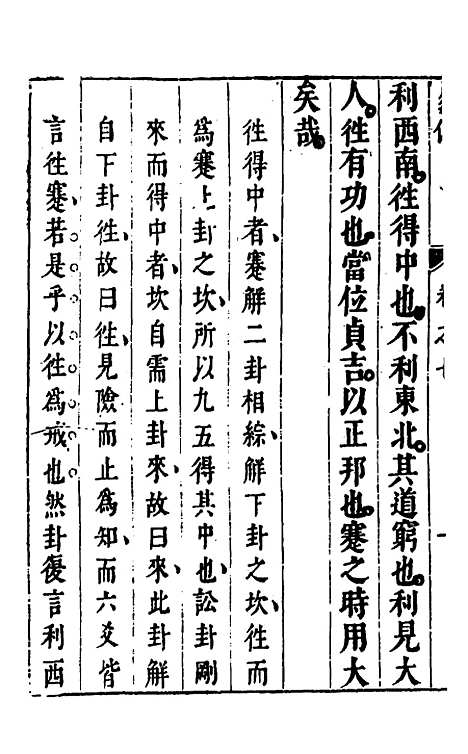 利西南往得中也不利東北其道窮也利見大
人往有功也當位貞吉以正邦也蹇之時用大
矣哉
往得中者蹇解二卦相綜解下卦之坎往而
為蹇上卦之坎所以九五得其中也訟卦剛
來而得中者坎自需上卦來故曰來此卦解
自下卦往故曰往見險而止為知而六爻皆
言往蹇若是乎以往為戒也然卦復言利西